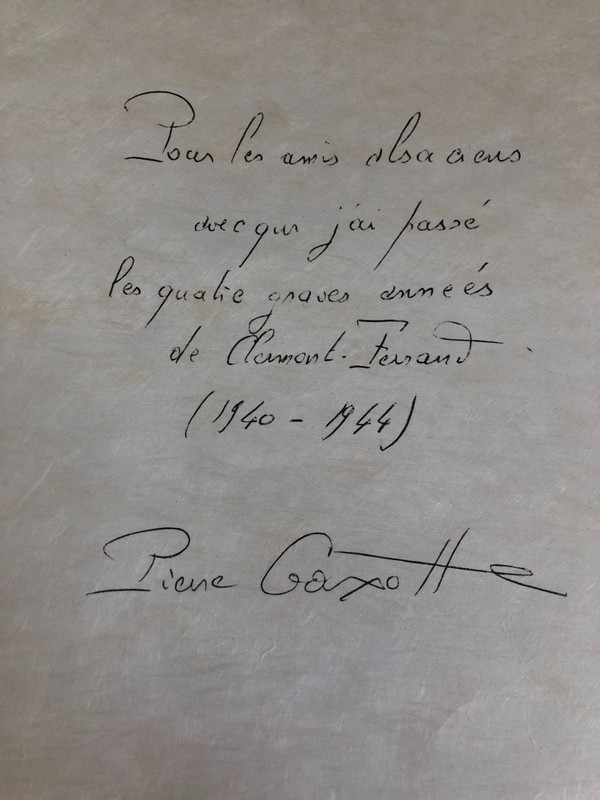 Pour les amis alsaciens
avec qui j'ai passé
les quatre graves années
de Clermont-Ferrand
(1940 - 1944)
Pierre Gaxotte